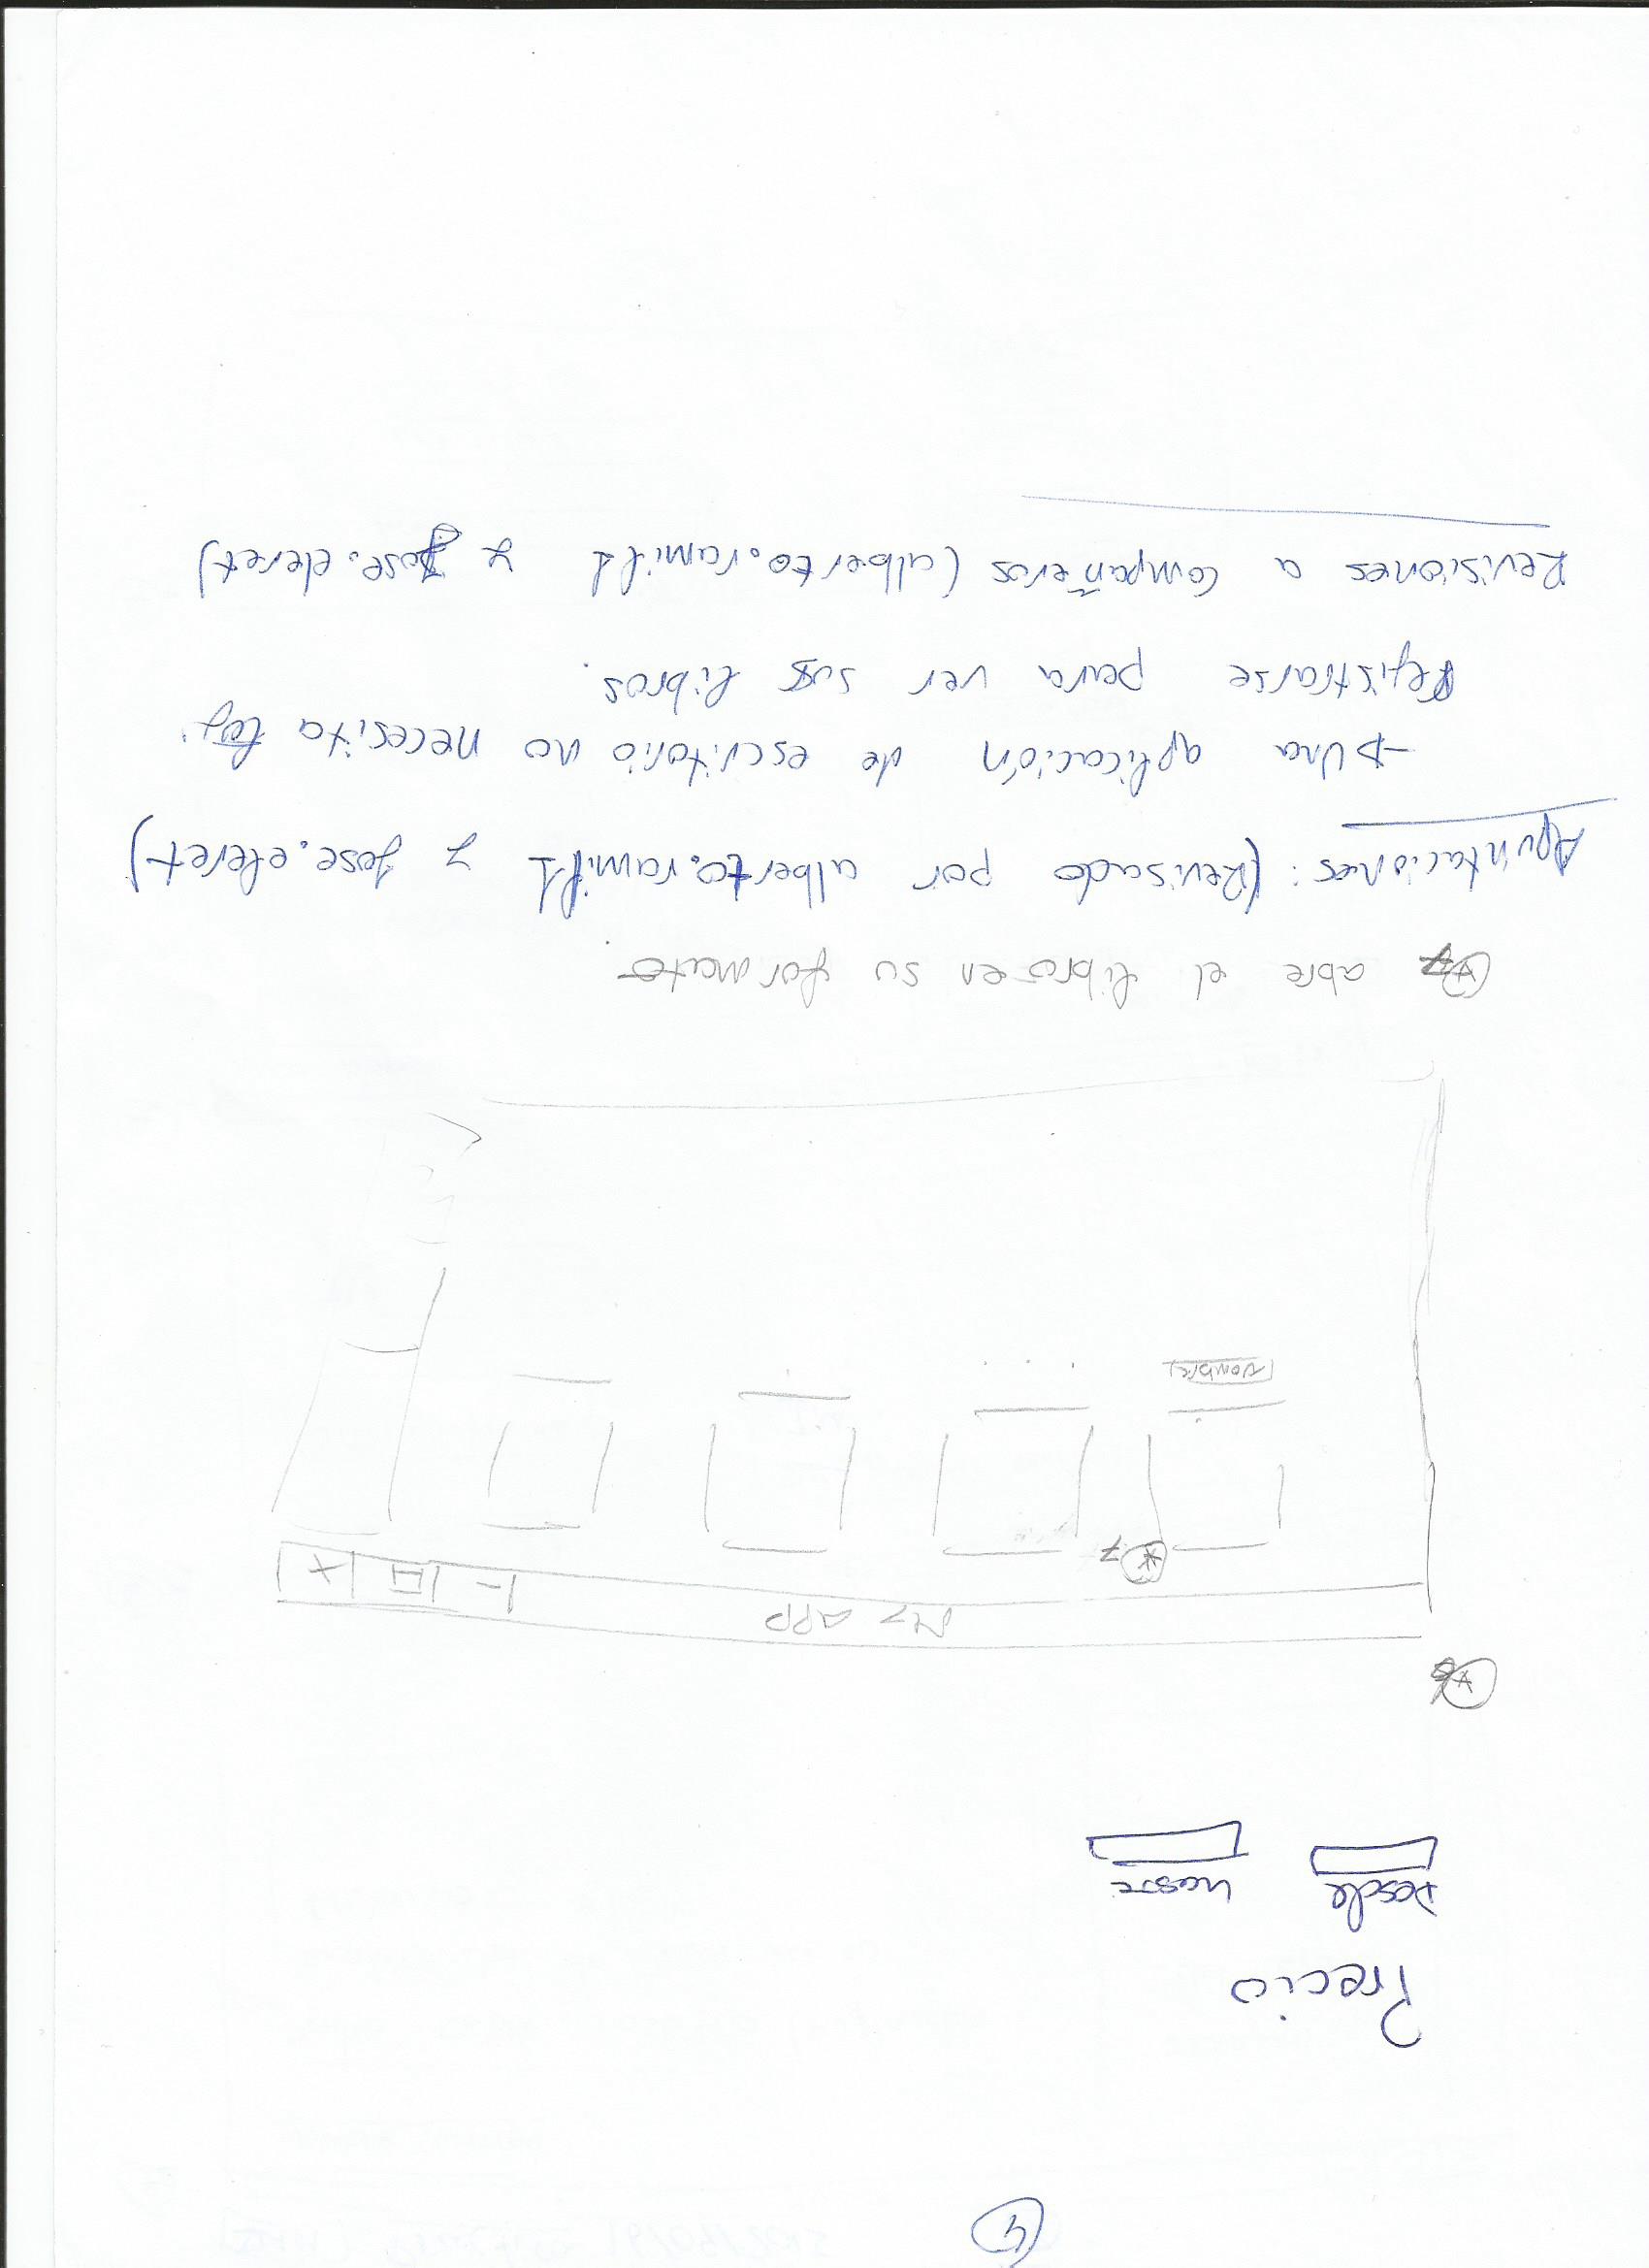 4
Precio
Desde hasta
*6
My APP
- □ X
*7
Nombre
. . .
*7 abre el libro en su formato.
Apuntaciones: (Revisado por alberto.ramil1 y jose.eleret)
→ Una aplicación de escritorio no necesita
registrarse para ver sus libros.
Revisiones a compañeros (alberto.ramil1 y jose.eleret)